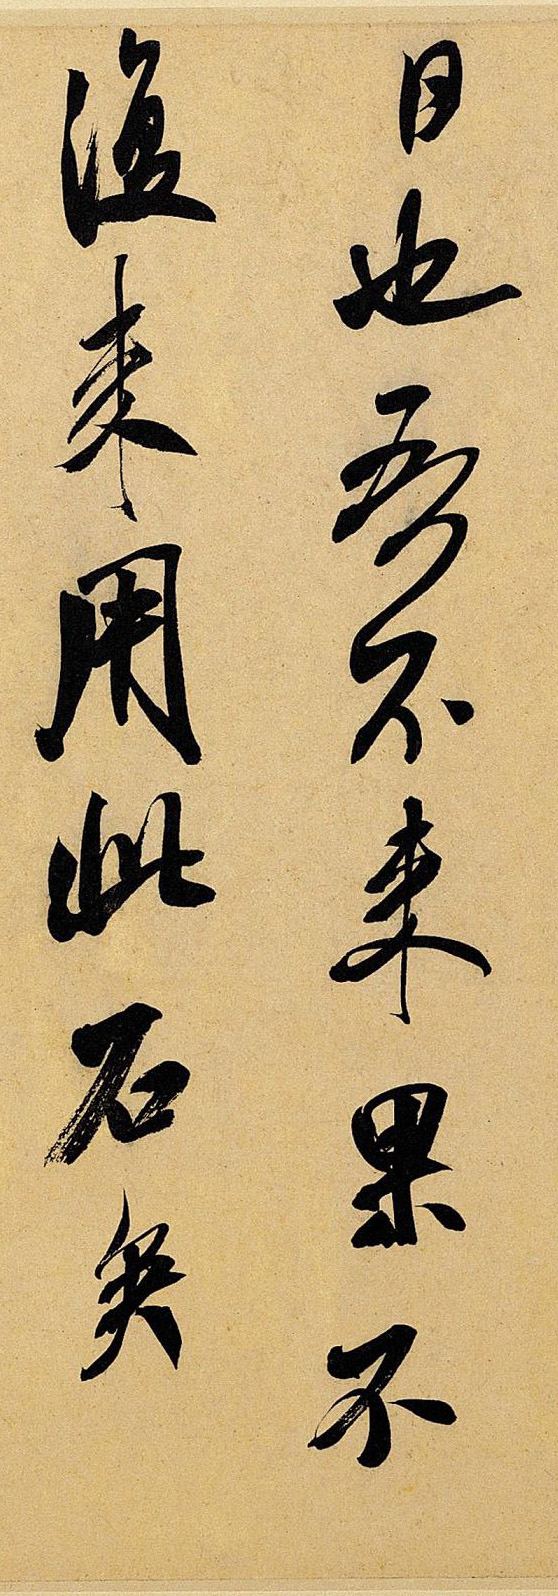 日也吾不来果不
復来用此石矣